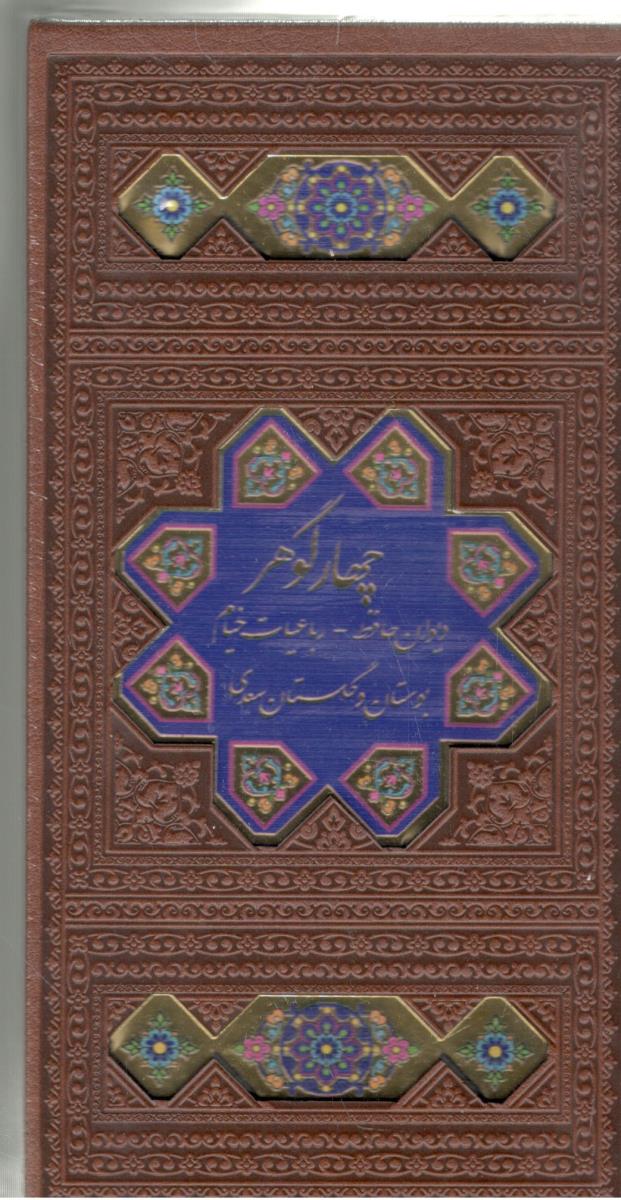 چهار گوهر
دیوان حافظ - رباعیات خیام
بوستان و گلستان سعدی